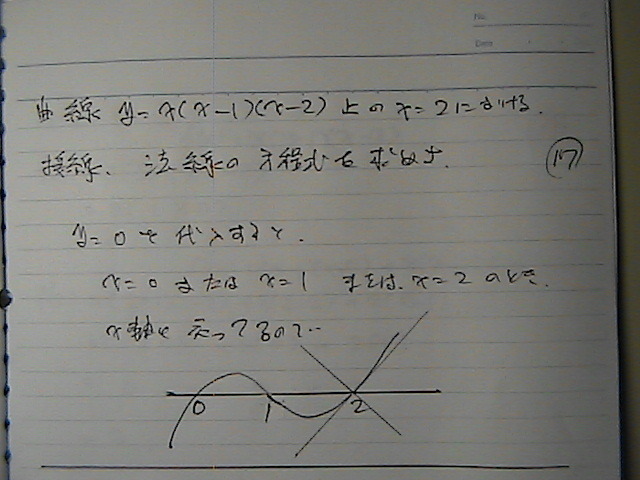 No.
Date
曲線 y=x(x-1)(x-2) 上の x=2 における.
接線、法線の方程式を求めよ. ⑰
y=0 を代入すると.
x=0 または x=1 または. x=2 のとき.
x軸と 交ってるので…
0 1 2